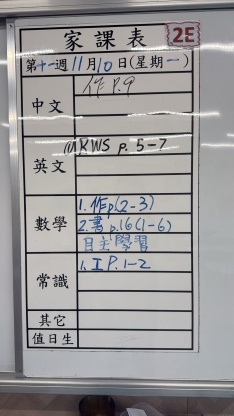 家課表 2E
第十一週 11月10日(星期一)
中文 作 P.9
英文 @RWS p. 5-7
數學 1. 作p(2-3)
2. 書 p.16(1-6)
自主學習
常識 1. 工 P. 1-2
其它
值日生